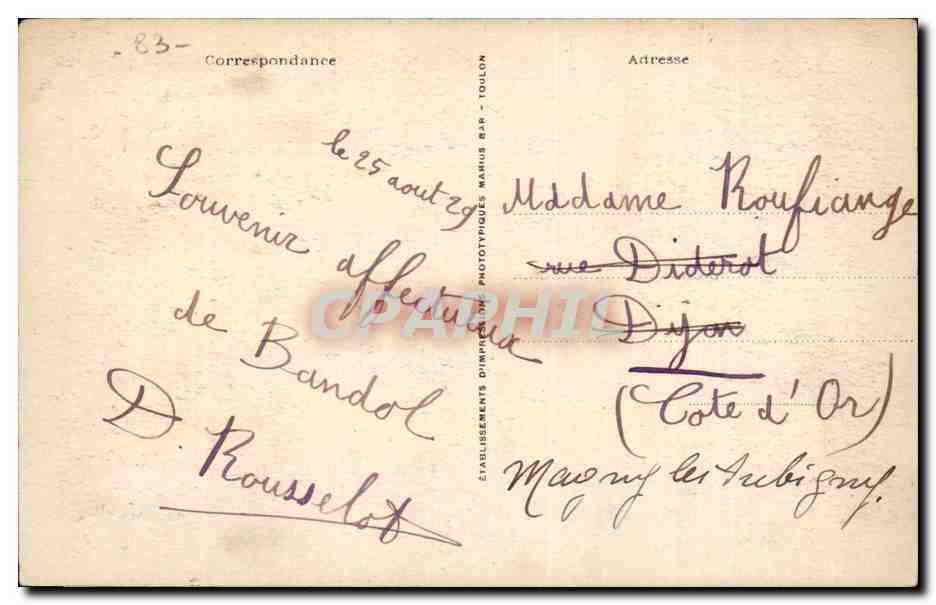 - 83 -
Correspondance
le 25 aout 29
Souvenir affectueux
de Bandol
D. Rousselot
ÉTABLISSEMENTS D'IMPRESSIONS PHOTOTYPIQUES MARIUS BAR - TOULON
CPAPHIL
Adresse
Madame Roufiange
rue Diderot
Dijon
(Cote d'Or)
Magny les Aubigny.